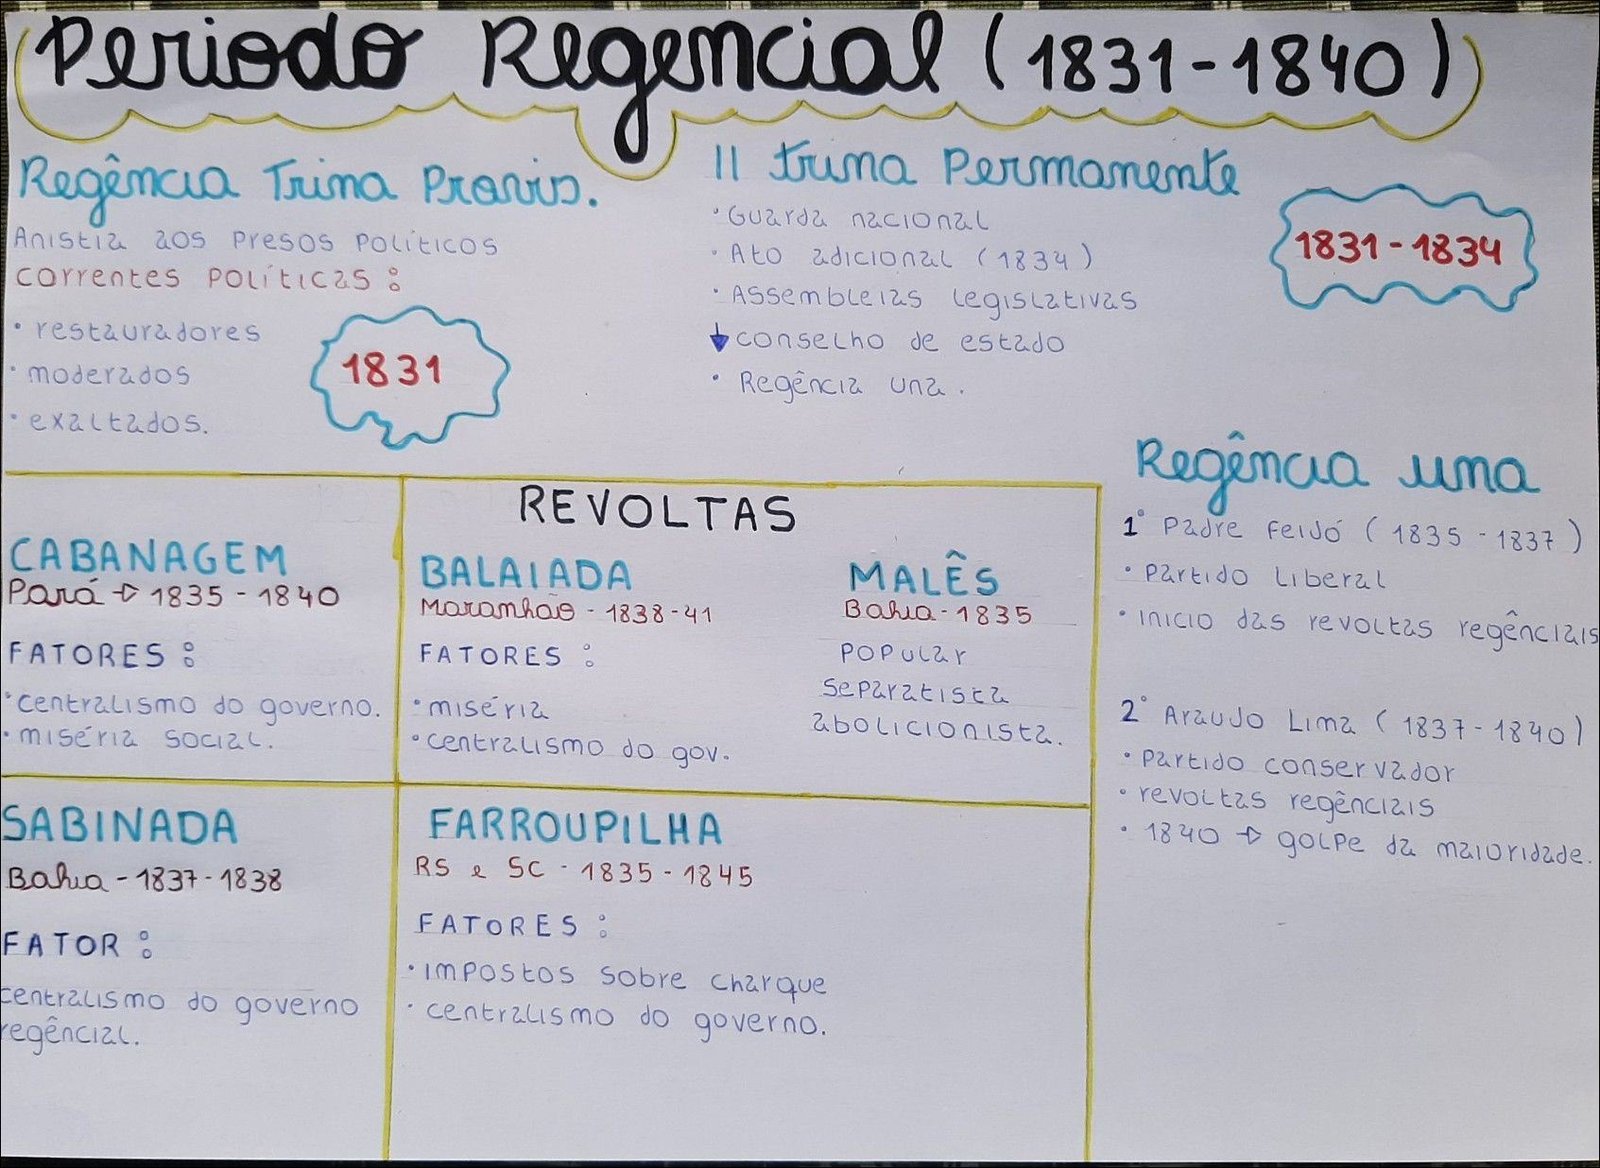 Periodo Regencial (1831-1840)
Regência Trina Provis.
Anistia aos presos políticos
correntes políticas:
• restauradores
• moderados
• exaltados.
1831
II trina Permanente
• Guarda nacional
• Ato adicional (1834)
• Assembleias legislativas
↓ conselho de estado
• Regência una.
1831-1834
Regência una
1° Padre Feijó (1835-1837)
• Partido Liberal
• Inicio das revoltas regênciais
2° Araujo Lima (1837-1840)
• Partido conservador
• revoltas regênciais
• 1840 → golpe da maioridade.
REVOLTAS
CABANAGEM
Pará → 1835-1840
FATORES:
• centralismo do governo.
• miséria social.
BALAIADA
Maranhão - 1838-41
FATORES:
• miséria
• centralismo do gov.
MALÊS
Bahia - 1835
Popular
separatista
abolicionista.
SABINADA
Bahia - 1837-1838
FATOR:
centralismo do governo
regêncial.
FARROUPILHA
RS e SC - 1835-1845
FATORES:
• impostos sobre charque
• centralismo do governo.